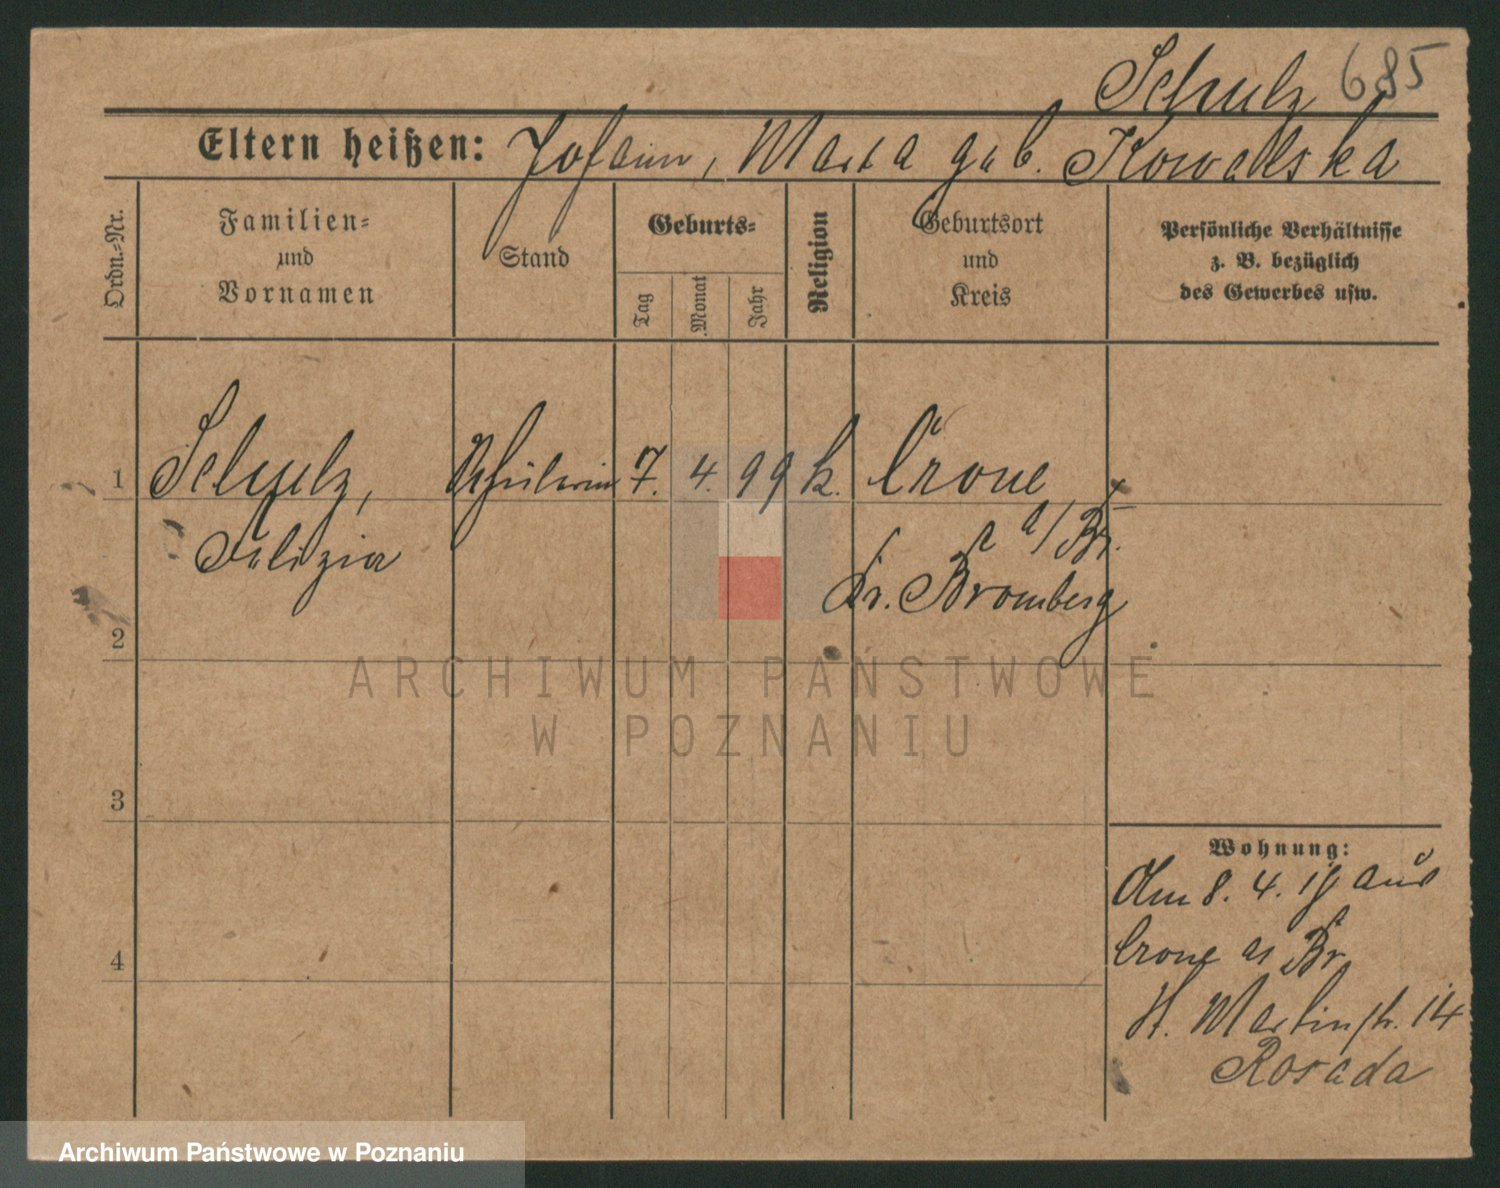 Schulz 685
Eltern heißen: Johann, Maria geb. Kowalska
Ordn.=Nr.
Familien=
und
Vornamen
Stand
Geburts=
Tag
Monat
Jahr
Religion
Geburtsort
und
Kreis
Persönliche Verhältnisse
z. B. bezüglich
des Gewerbes usw.
1 Schulz, Schülerin 7. 4. 99 k. Crone
Felizia a/Br.
Kr. Bromberg
2
3
4
Wohnung:
Am 8. 4. aus
Crone a Br
St. Martinstr. 14
Rosada
ARCHIWUM PAŃSTWOWE
W POZNANIU
Archiwum Państwowe w Poznaniu